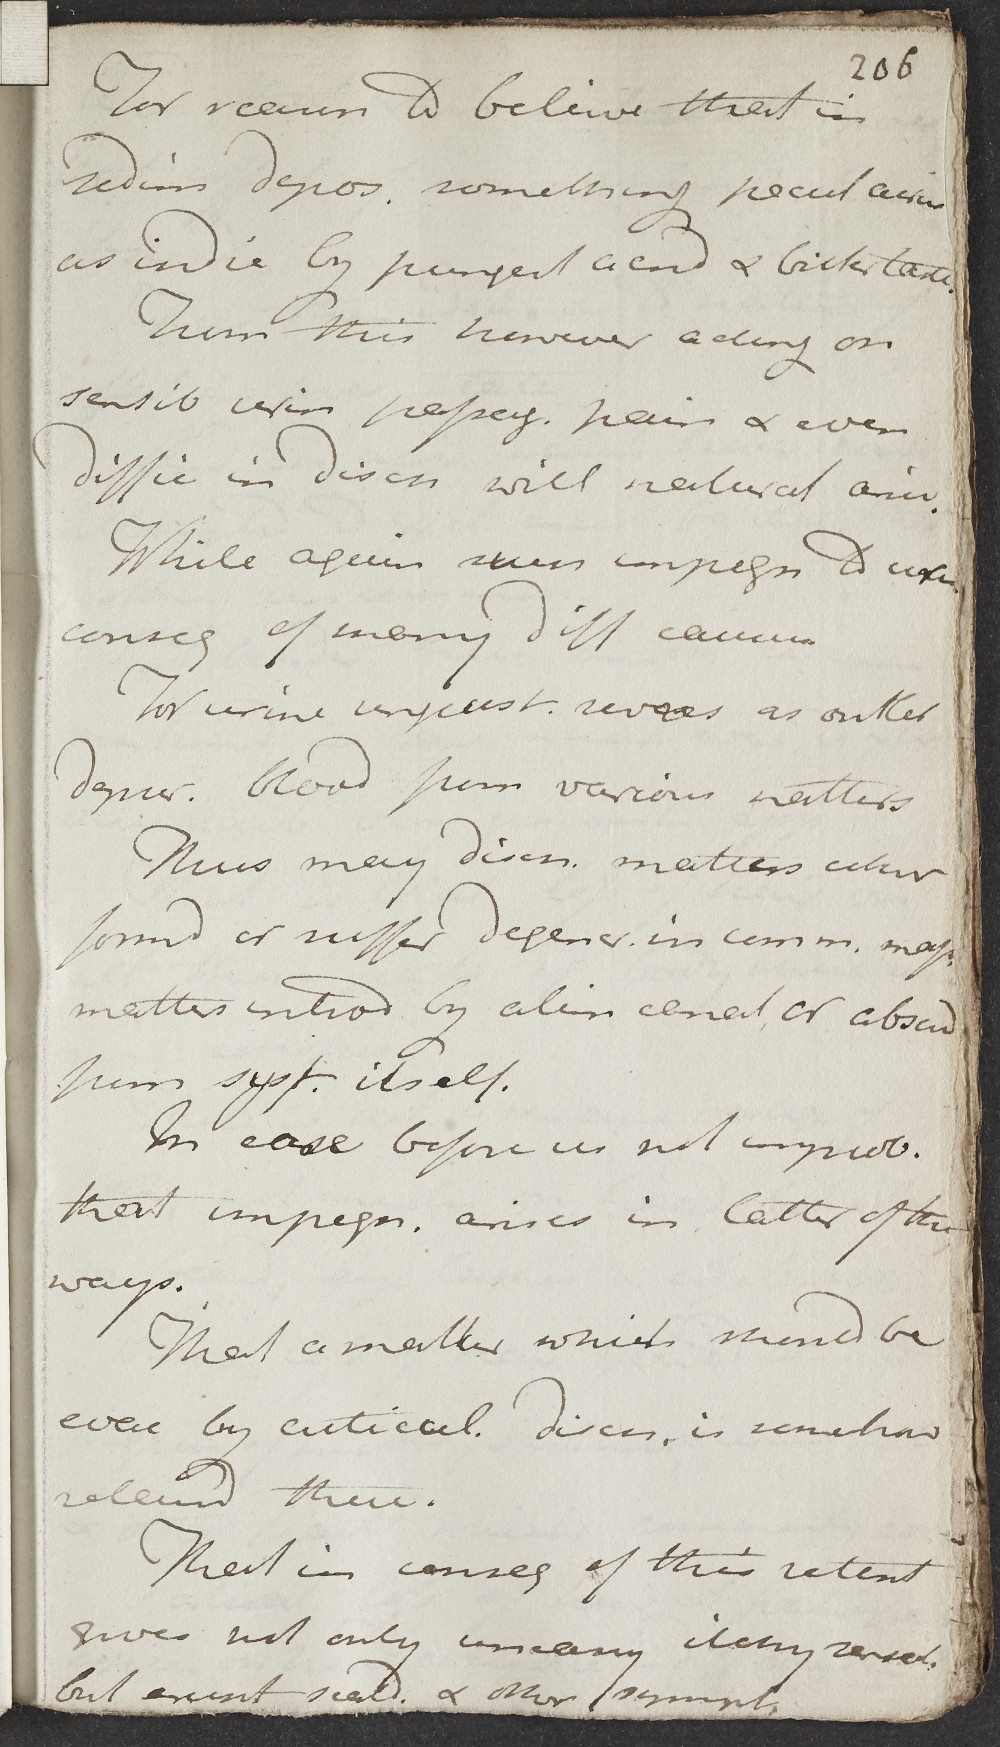 206
For reason to believe that in
sedim depos. something peculiarum
as indic by pungent acrid & bitter taste.
From this however acting on
sensib urin passag. pain & even
diffic in disch will natural
While again such impegn to urin
conseq of many diff causes
For urine unquest. serves as outlet
depur. blood from various matters
Thus may disch. matters either
formd or suffer degener. in comm. mass.
matters introd by alim canal or absord
from syst. itself.
In case before us not improb.
that impregn. arises in latter of these
ways.
That a matter which should be
evac by cuticul. disch. is somehow
retaind there.
That in conseq of this retent
gives not only uneasy itchy sensat.
but erupt scald. & other sympt.